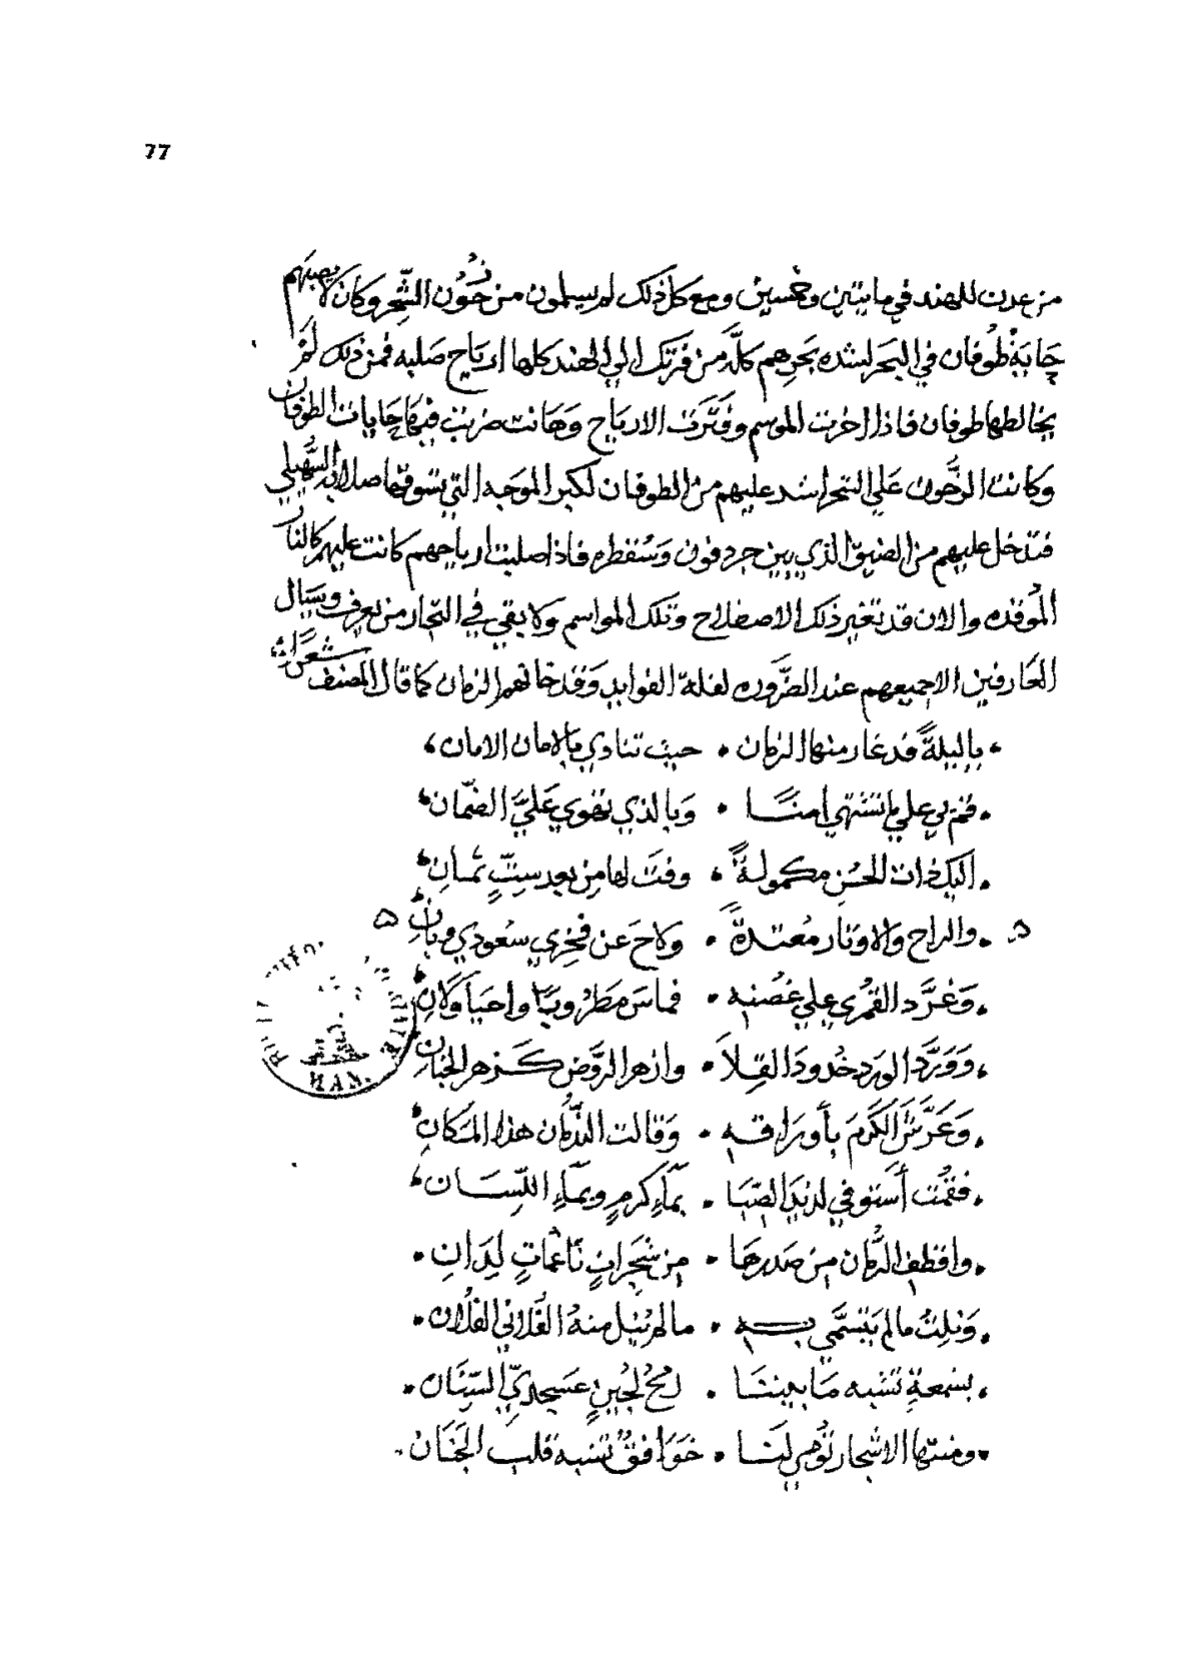 77
من عدن للهند في مايتين وخمسين ومع كل ذلك لم يسلمون من حَوْن الشّحر وكان لا يصيبهم
جاية طوفان في البحر لشده بحرهم كلّه من فرتك الي الهند كلها ارياح صلبه فمن ذلك لم
يخالطها طوفان فاذا اخرت الموسم وفترت الارياح وهانت ضربت فيها جايات الطوفان
وكانت علي التجر اشد عليهم من الطوفان لكبر الموجه التي تسوقها السهيلي
فتدخل عليهم من الضيق الذي بين جردفون وسقطره فاذا صلبت ارياحهم كانت عليهم كالنار
الموقده والان قد تغير ذلك الاصطلاح وتلك المواسم ولا بقي في التجار من يعرف ويسال
العارفين الا جميعهم عند الضروره لقلة الفوايد وقد خانهم الزمان كما قال المصنف شعرًا
يا ليلةً قد غار منها الزمان • حيث تنادي بالامان الامان
قم بي علي ما تشتهي امنا • وبالذي تهوي عليَّ الضمان
اليك ذات الحسن مكمولةً • وفت لها من بعد ستٍّ ثمان
والراح والاوتار معتدةً • ولاح عن فخري سعودي وبان
وغرَّد القمري علي غصنه • فماس مطروبًا واحيا ولان
وورَّد الورد خدودَ القلا • وازهر الروض كزهر الجنان
وعرَّش الكرم بأوراقه • وقالت الندمان هذا المكان
فقمت أستوفي لذيذ الصّبا • بماءِ كرمٍ وبماءِ اللسان
واقطف الرمان من صدرها • من شجراتٍ ناعماتٍ لدان
ونلت ما لم يتسمّي به • ما لم ينيل منه الفلاني الفلان
بشمعةٍ تشبه ما بيننا • رمح لجينٍ عسجديّ السنان
ومنتها الاشجار توهي لنا • خوافقٌ تشبه قلب الجنان